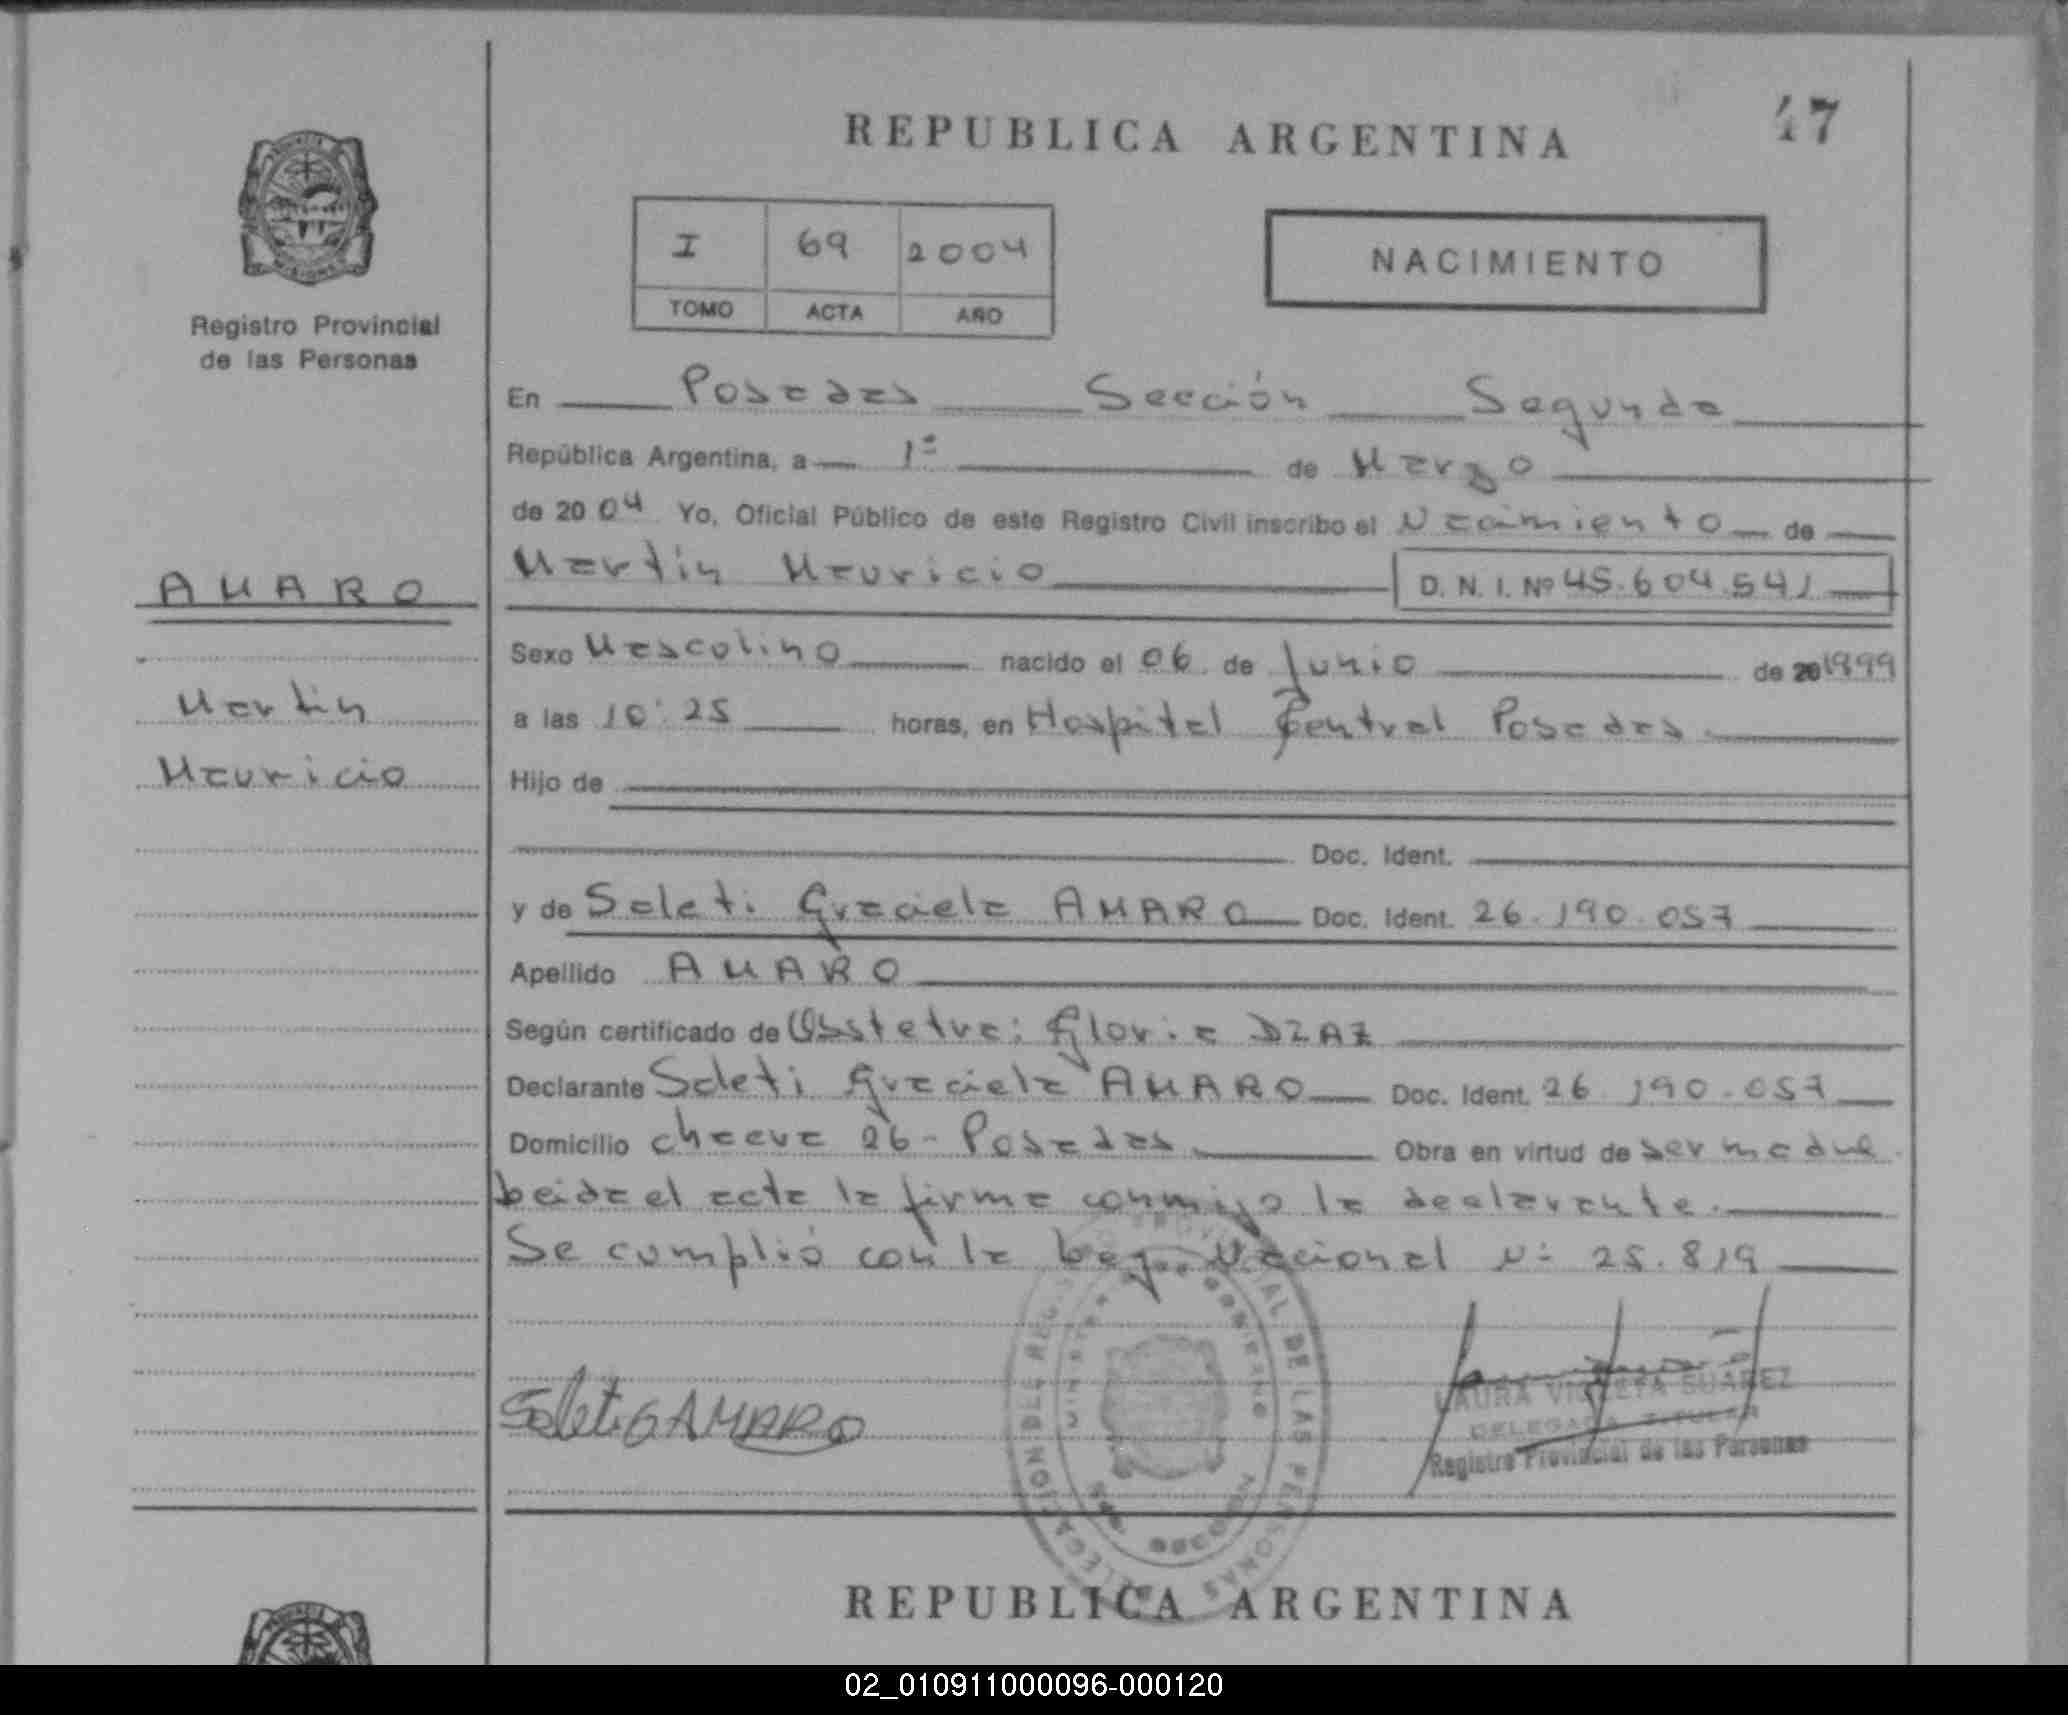 REPUBLICA ARGENTINA
47
I 69 2004
TOMO ACTA AÑO
NACIMIENTO
Registro Provincial
de las Personas
En Posadas Sección Segunda
República Argentina, a 1º de Marzo
de 20 04 Yo, Oficial Público de este Registro Civil inscribo el Nacimiento de
Martín Mauricio D. N. I. Nº 45.604.541
AMARO
Martín
Mauricio
Sexo Masculino nacido el 06 de Junio de 20 1999
a las 10:25 horas, en Hospital Central Posadas.
Hijo de
Doc. Ident.
y de Saleti Graciela AMARO Doc. Ident. 26.190.057
Apellido AMARO
Según certificado de Obstetra: Gloria DIAZ
Declarante Saleti Graciela AMARO Doc. Ident. 26.190.057
Domicilio 26 - Posadas Obra en virtud de ser madre.
Leida el acta la firma conmigo la declarante.
Se cumplió con la Ley Nacional Nº 25.819
Saleti G AMARO
DELEGACION DEL REGISTRO PROVINCIAL DE LAS PERSONAS
LAURA VIOLETA SUAREZ
DELEGADA TITULAR
Registro Provincial de las Personas
REPUBLICA ARGENTINA
02_010911000096-000120